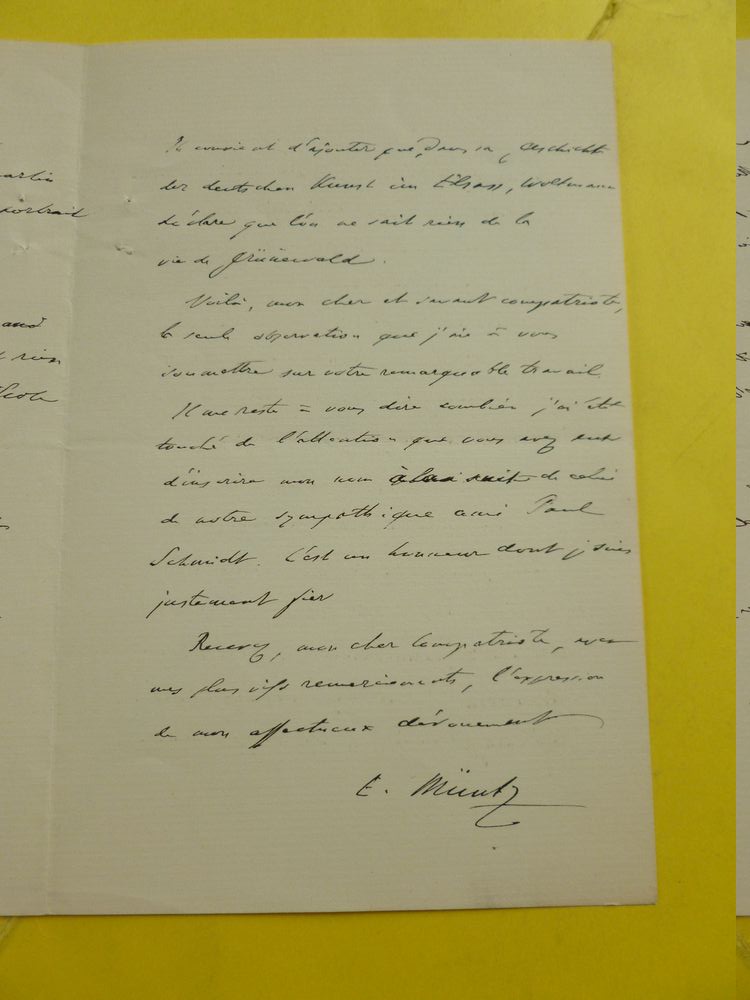 artin
portrait
and
t rien
Il convient d'ajouter que, dans sa Geschichte
der deutschen Kunst im Elsass, Woltmann
déclare que l'on ne sait rien de la
vie de Grünewald.
Voilà, mon cher et savant compatriote,
la seule observation que j'aie à vous
soumettre sur votre remarquable travail.
Il me reste à vous dire combien j'ai été
touché de l'attention que vous avez eue
d'inscrire mon nom à la suite de celui
de notre sympathique ami Paul
Schmidt. C'est un honneur dont je suis
justement fier
Recevez, mon cher Compatriote, avec
mes plus vifs remerciements, l'expression
de mon affectueux dévouement
E. Müntz